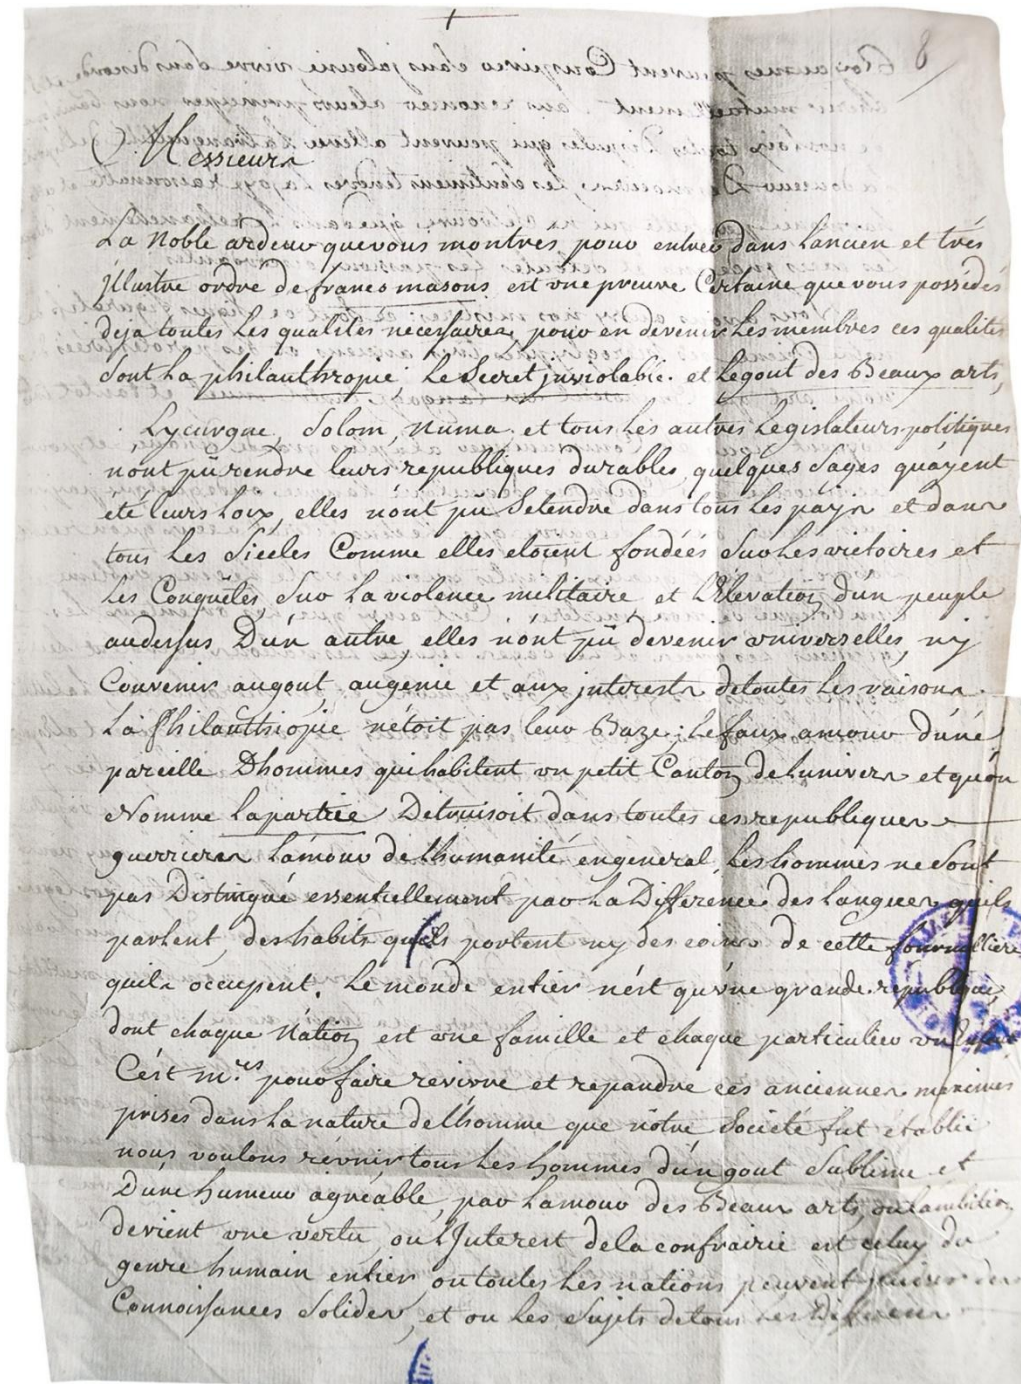 8
Messieurs
La Noble ardeur que vous montrés pour entrer dans L'ancien et trés
jllustre ordré de francs masons est vne preuve Certaine que vous possédés
deja toutes les qualités necessaires pour en devenir les membres ces qualités
sont La philanthropie, Le Secret jnviolable. et Legout des Beaux arts,
Lycurgue, Solom, Numa. et tous les autres Legislateurs politiques
n'ont pü rendre leurs republiques durables, quelques sages qu'ayent
eté leurs Loix, elles n'ont pu s'etendre dans tous Les pays et dans
tous les Siecles Comme elles etoient fondéés sur Les victoires et
Les Conquêtes sur La violence militaire et L'Elevation d'un peuple
audessus D'un autre, elles n'ont pü devenir vniverselles, ny
Convenir augout, augenie et aux jnterests detoutes Les
La Philanthropie n'étoit pas leur Baze; Le faux amour d'uné
pareille D'hommes qui habitent vn petit Canton de Lunivers et qu'on
Nomme Lapartrie Detruisoit dans toutes ces republiques
guerrieres L'amour de l'humanité engeneral, Les hommes ne sont
pas Distingué essentiellement par La Difference des Langues qu'ils
parlent des habits qu'ils portent ny des coins de cette fourmilliere
quils occupent. Le monde entier n'ést qu'vne grande republique,
dont chaque Nation est vne famille et chaque particulier vn Enfant
C'ést m.rs pour faire revivre et repandre ces anciennes maximes
prises dans La nature de l'homme que nôtre Société fut établie
nous voulons réunir tous Les hommes d'un gout sublime et
D'une humeur agréable, par L'amour des Beaux arts, ou L'ambition
devient vne vertu, ou L'Jnterest dela confrairie est celuy du
genre humain entier, ou toutes Les nations peuvent puiser des
Connoissances solides, et ou Les Sujets detous Les Differens